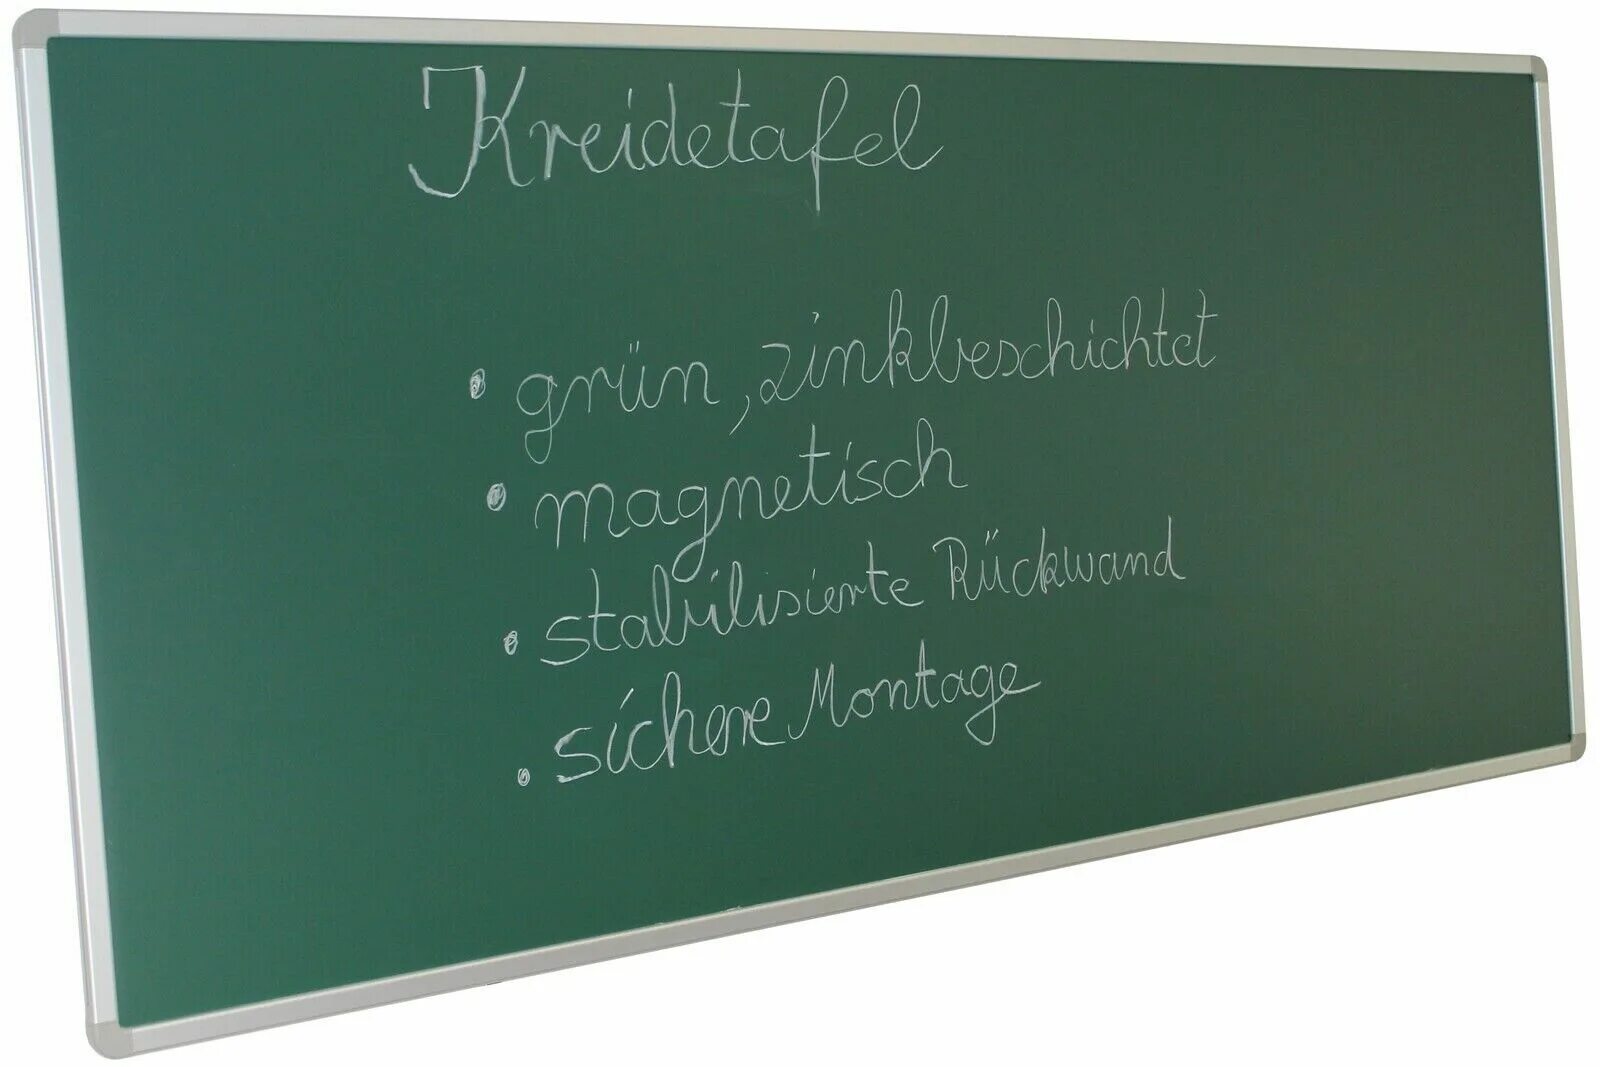 Kreidetafel
• grün, zinkbeschichtet
• magnetisch
• stabilisierte Rückwand
• sichere Montage